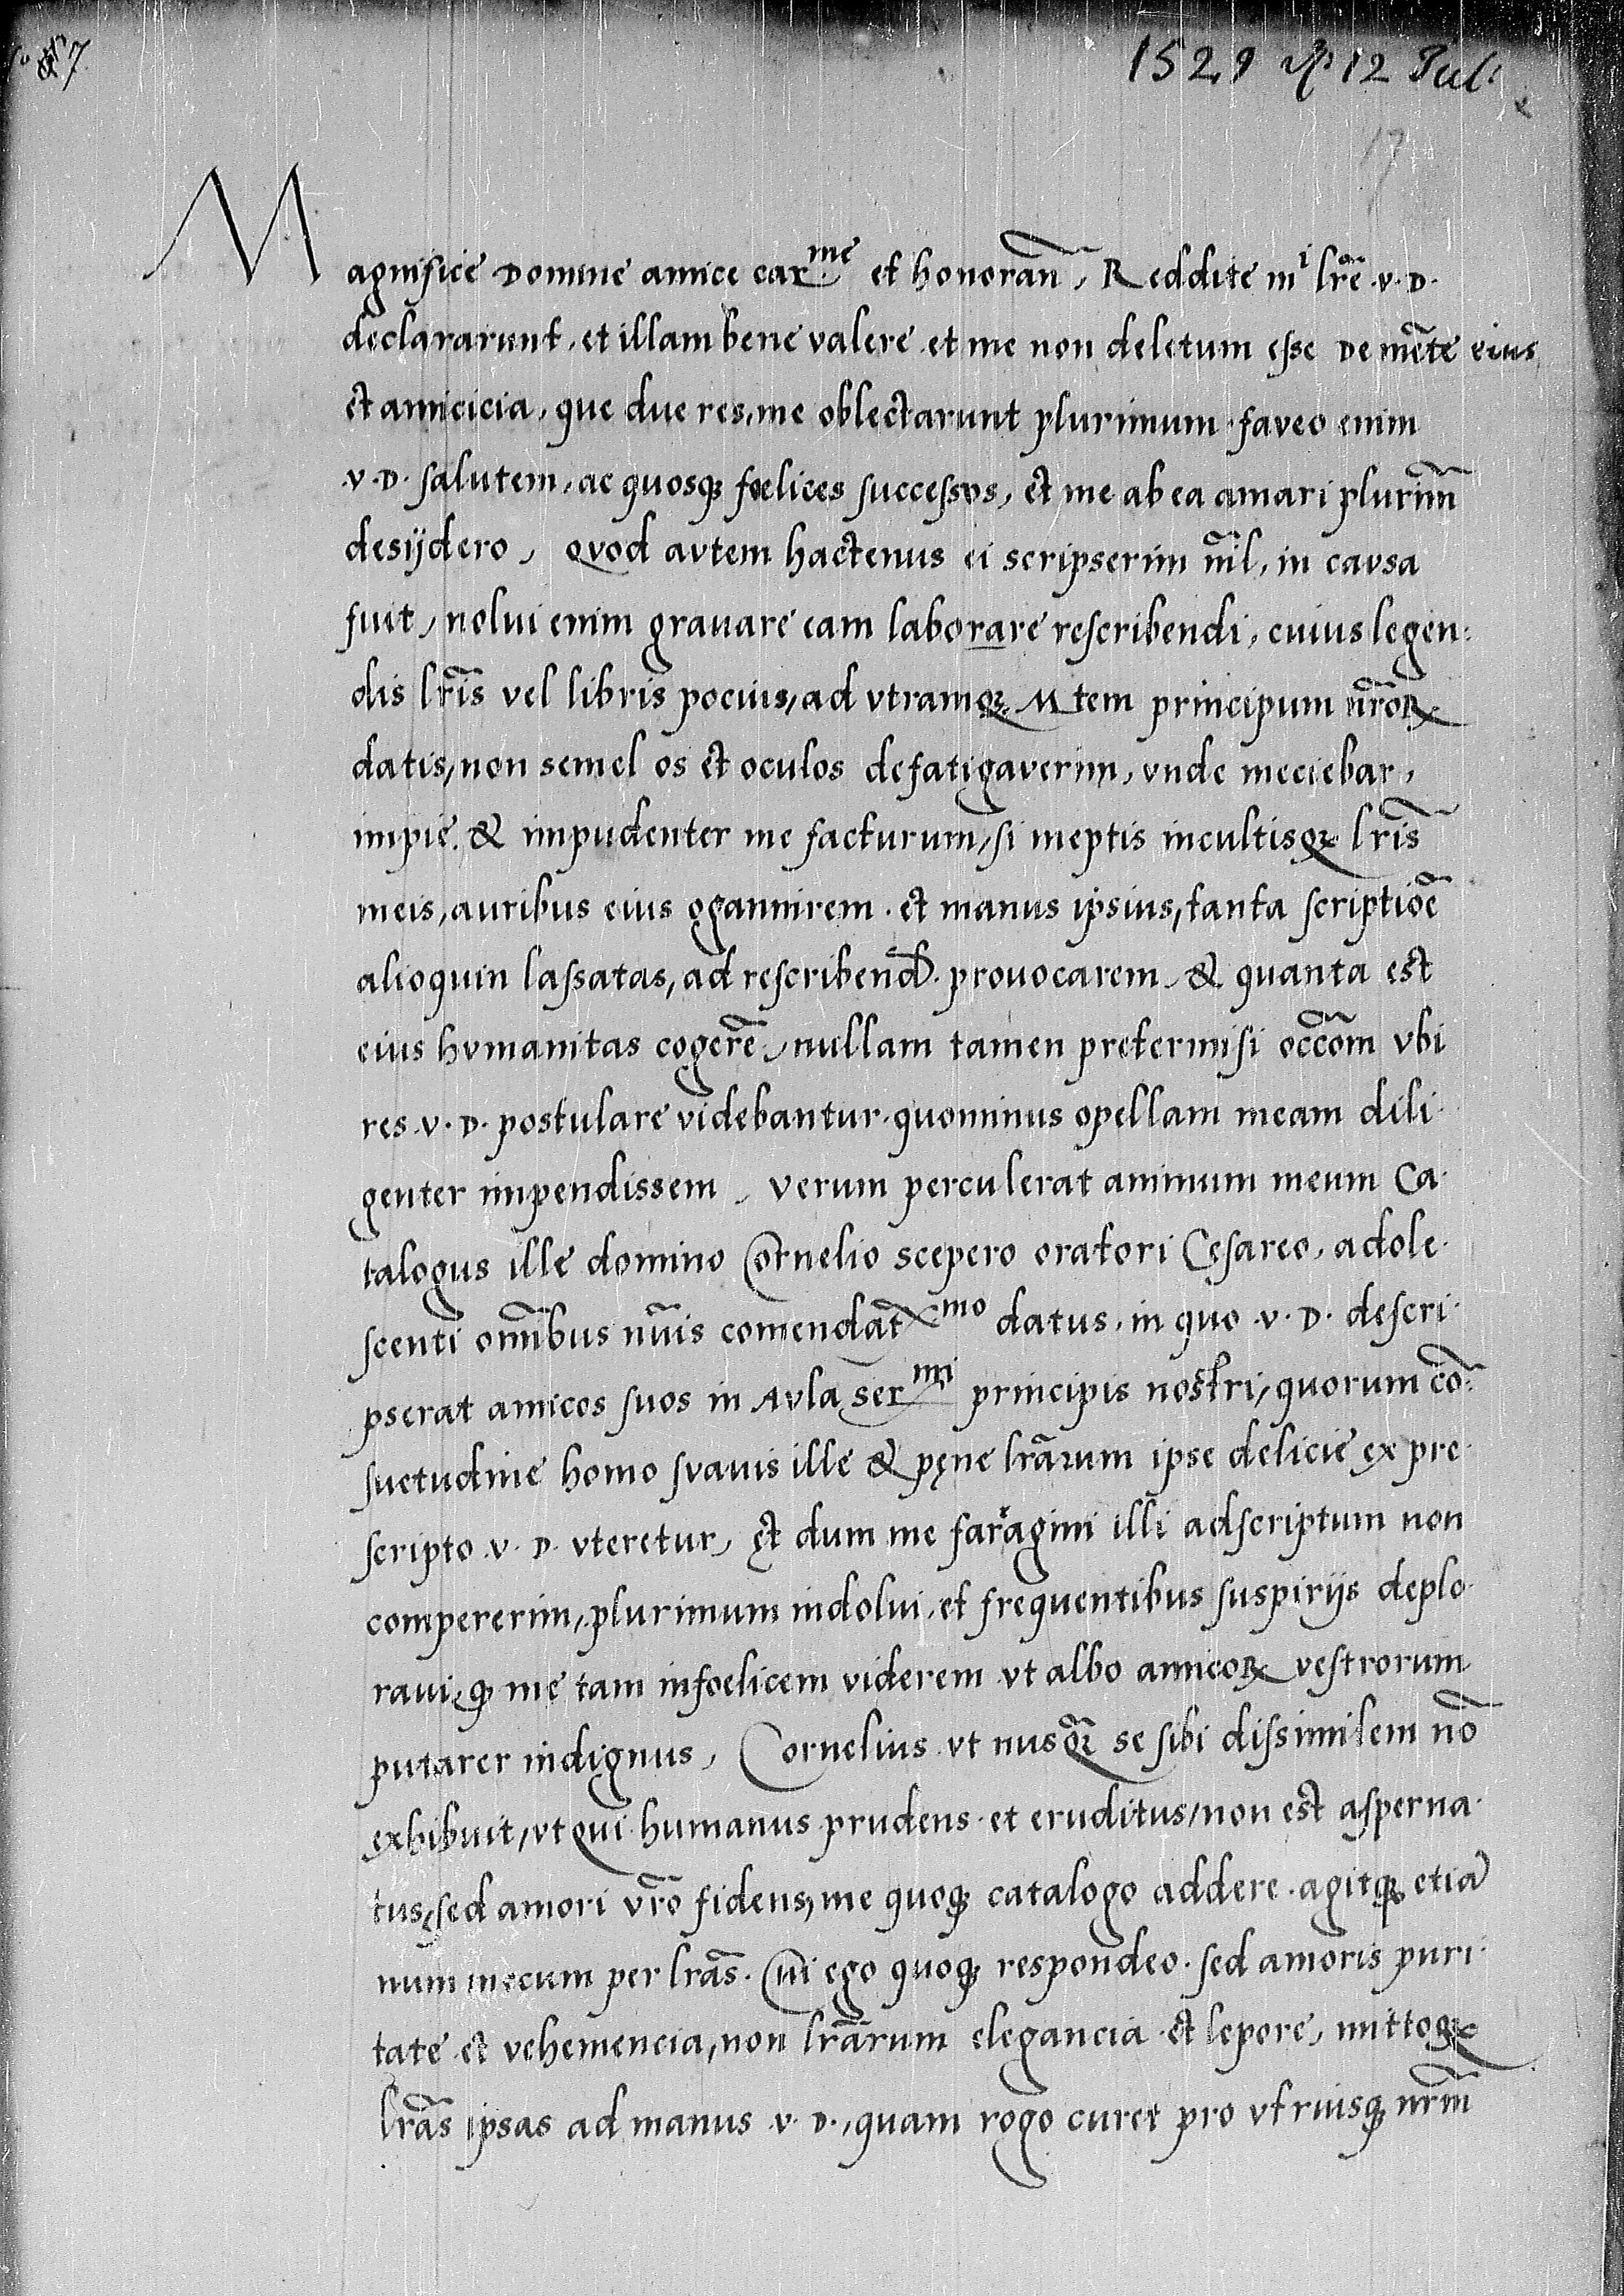 1529 12 Jul:
17
Magnifice Domine amice carme et honoran̄, Reddite mi lr̄e .v.D.
declararunt, et illam bene valere et me non deletum esse De mēte eius
et amicicia, que due res, me oblectarunt plurimum, faveo enim
.v.D. salutem, ac quosq; fœlices successvs, et me ab ea amari plurim̄
desijdero, Qvod avtem hactenus ei scripserim nīl, in cavsa
fuit, nolvi enim grauare eam laborare rescribendi, cuius legen:
dis lr̄is vel libris pocius, ad vtramq; Mtem principum nr̄oꝝ
datis, non semel os et oculos defatigaverim, vnde meciebar,
impie & impudenter me facturum, si ineptis incultisq; lr̄is
meis, auribus eius ogannirem . et manus ipsius, tanta scriptiōe
alioquin lassatas, ad rescribend̄ . provocarem, & quanta est
eius hvmanitas cogerē, nullam tamen pretermisi occōm vbi
res .v.D. postulare videbantur . quominus opellam meam dili-
genter impendissem, verum perculerat animum meum Ca-
talogus ille domino Cornelio scepero oratori Cesareo, adole-
scenti om̄ibus nūis comendatmo datus, in quo .v.D. descri-
pserat amicos suos in Avla sermi principis nostri, quorum cō-
suetudine homo svavis ille & pęne lr̄arum ipse delicie ex pre-
scripto .v.D. vteretur, Et dum me farragini illi adscriptum non
compererim, plurimum indolvi, et frequentibus suspirijs deplo-
ravi, q; me tam infoelicem viderem vt albo amicoꝝ vestrorum
putarer indignus, Cornelius vt nusq̄ se sibi dissimilem nō
exhibuit, vt qvi humanus prudens et eruditus, non est asperna-
tus, sed amori vr̄o fidens, me quoq; catalogo addere . agitq; etiā
num mecum per lr̄as . Cui ego quoq; respondeo . sed amoris puri-
tate et vehemencia, non lr̄arum elegancia et lepore, mittoq;
lr̄as ipsas ad manus .v.D., quam rogo curet pro vtriusq; nr̄m